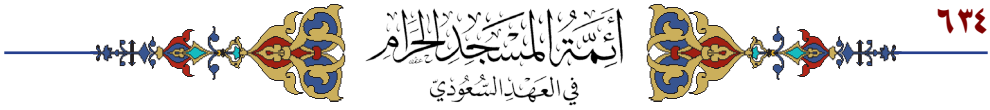 ٦٣٤
أَئِمَّةُ المَسْجِدِ الحَرَامِ
فِي العَهْدِ السُّعُودِيِّ